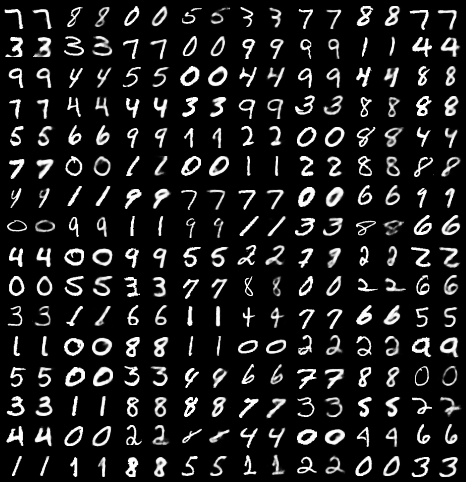 7 7 8 8 0 0 5 5 3 3 7 7 8 8 7 7
3 3 3 3 7 7 0 0 9 9 9 9 1 1 4 4
9 9 4 4 5 5 0 0 4 4 9 9 4 4 8 8
7 7 4 4 4 4 3 3 9 9 3 3 8 8 8 8
5 5 6 6 9 9 1 1 2 2 0 0 8 8 4 4
7 7 0 0 1 1 0 0 1 1 2 2 8 8 8 8
9 9 1 1 9 9 7 7 7 7 0 0 6 6 9 9
0 0 9 9 1 1 9 9 1 1 3 3 8 8 6 6
4 4 0 0 9 9 5 5 2 2 7 9 2 2 2 2
0 0 5 5 3 3 7 7 8 8 0 0 2 2 6 6
3 3 1 1 6 6 1 1 4 4 7 7 6 6 5 5
1 1 0 0 8 8 1 1 0 0 2 2 2 2 9 9
5 5 0 0 3 3 4 9 6 6 7 7 8 8 0 0
3 3 1 1 8 8 8 8 7 7 3 3 5 5 2 2
4 4 0 0 2 2 8 8 4 4 0 0 4 4 6 6
1 1 1 1 8 8 5 5 1 1 2 2 0 0 3 3